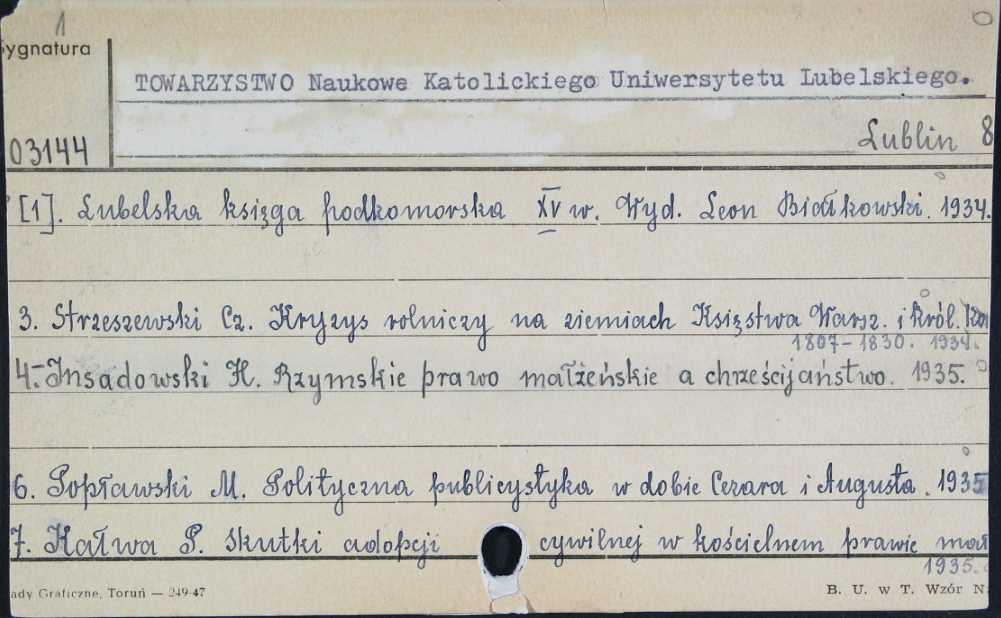 1
Sygnatura
TOWARZYSTWO Naukowe Katolickiego Uniwersytetu Lubelskiego.
03144
Lublin 8
[1]. Lubelska księga podkomorska XV w. Wyd. Leon Białkowski. 1934.
3. Strzeszewski Cz. Kryzys rolniczy na ziemiach Księstwa Warsz. i Król.
1807-1830. 1934.
4. Insadowski H. Rzymskie prawo małżeńskie a chrześcijaństwo. 1935.
6. Popławski M. Polityczna publicystyka w dobie Cezara i Augusta. 1935
7. Kałwa P. Skutki adopcji cywilnej w kościelnem prawie mał
1935.
ady Graficzne, Toruń — 249-47
B. U. w T. Wzór N